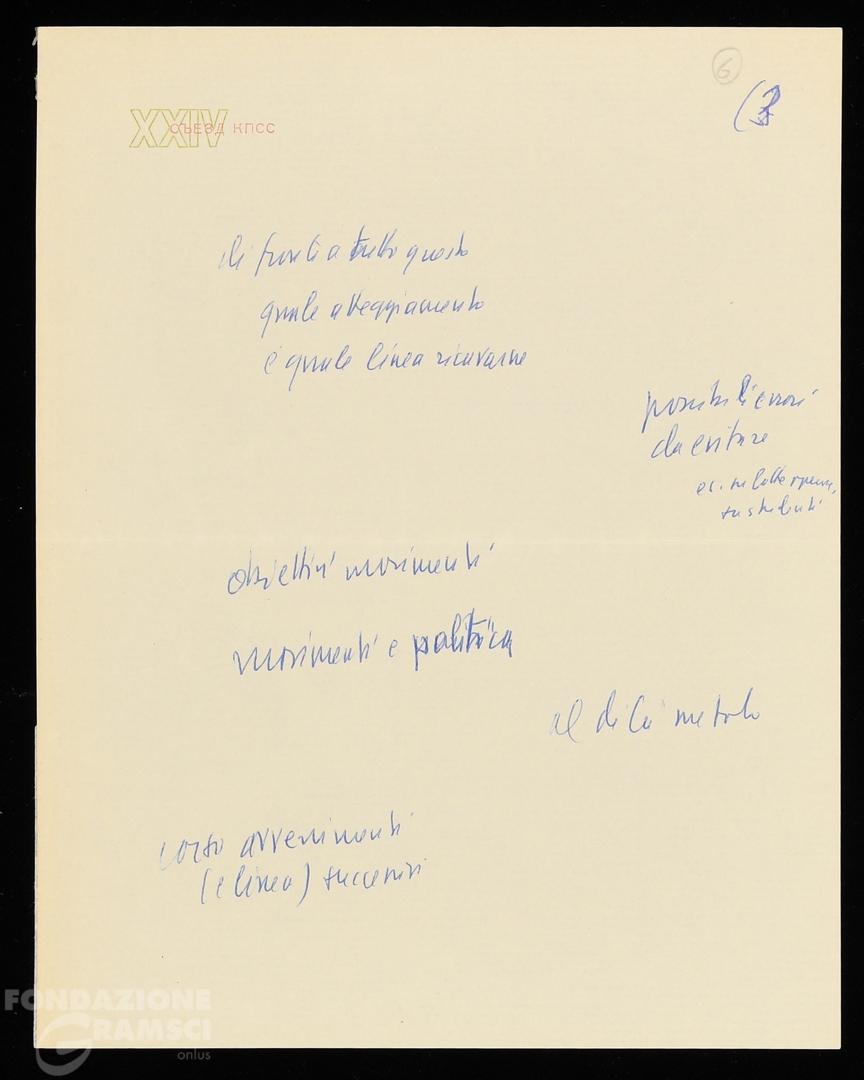 6
(3
XXIV СЪЕЗД КПСС
di fronte a tutto questo
quale atteggiamento
e quale linea ricavarne
possibili errori
da evitare
es. su lotte operaie,
studenti
obiettivi movimenti
movimenti e politica
al di là metodo
corso avvenimenti
(e linea) successivi
FONDAZIONE
GRAMSCI
onlus